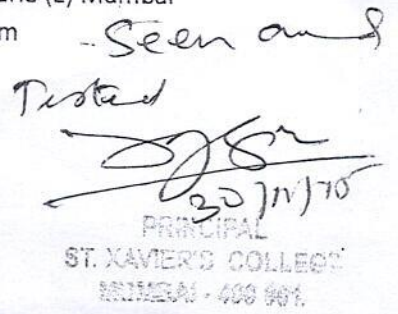 (E) Mumbai
Seen and
Tested
PRINCIPAL
ST. XAVIER'S COLLEGE
MUMBAI - 400 001.